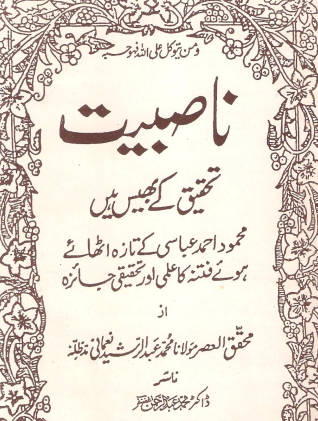 ومن یتوکل علی اللہ فہو حسبہ
ناصبیت
تحقیق کے بھیس میں
محمود احمد عباسی کے تازہ اٹھائے
ہوئے فتنہ کا علمی اور تحقیقی جائزہ
از
محقق العصر مولانا محمد عبد الرشید نعمانی مدظلہ
ناشر
ڈاکٹر محمد عبد الرحمن غضنفر